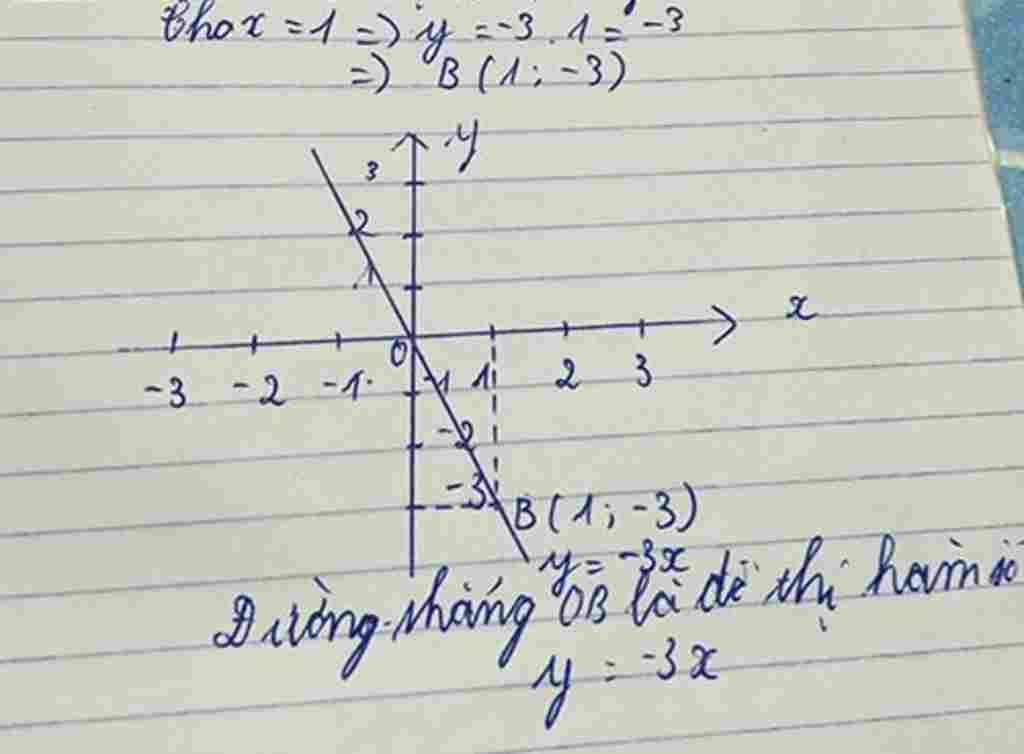 Cho x = 1 => y = -3 . 1 = -3
=> B (1 ; -3)
y
3
2
1
x
O
-3 -2 -1 -1 1 2 3
-2
-3
B (1 ; -3)
y = -3x
Đường thẳng OB là đồ thị hàm số
y = -3x